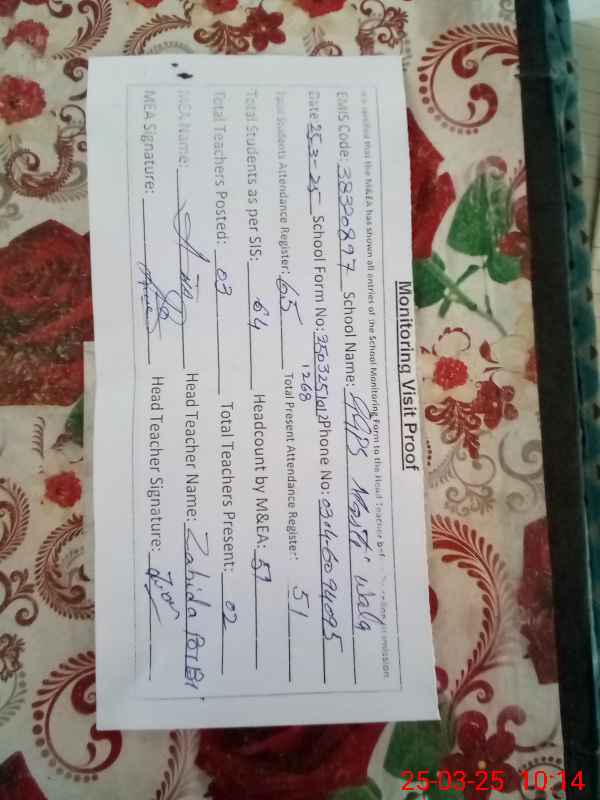 Monitoring Visit Proof
It is certified that the M&EA has shown all entries of the School Monitoring Form to the Head Teacher
EMIS Code: 38320897 School Name: GGPS Wala
Date 25-3-25 School Form No: Phone No: 0304-6094095
1268
Total Students Attendance Register: 65 Total Present Attendance Register: 51
Total Students as per SIS: 64 Headcount by M&EA: 51
Total Teachers Posted: 03 Total Teachers Present: 02
MEA Name: Head Teacher Name: Zahida
MEA Signature: Head Teacher Signature:
25-03-25 10:14